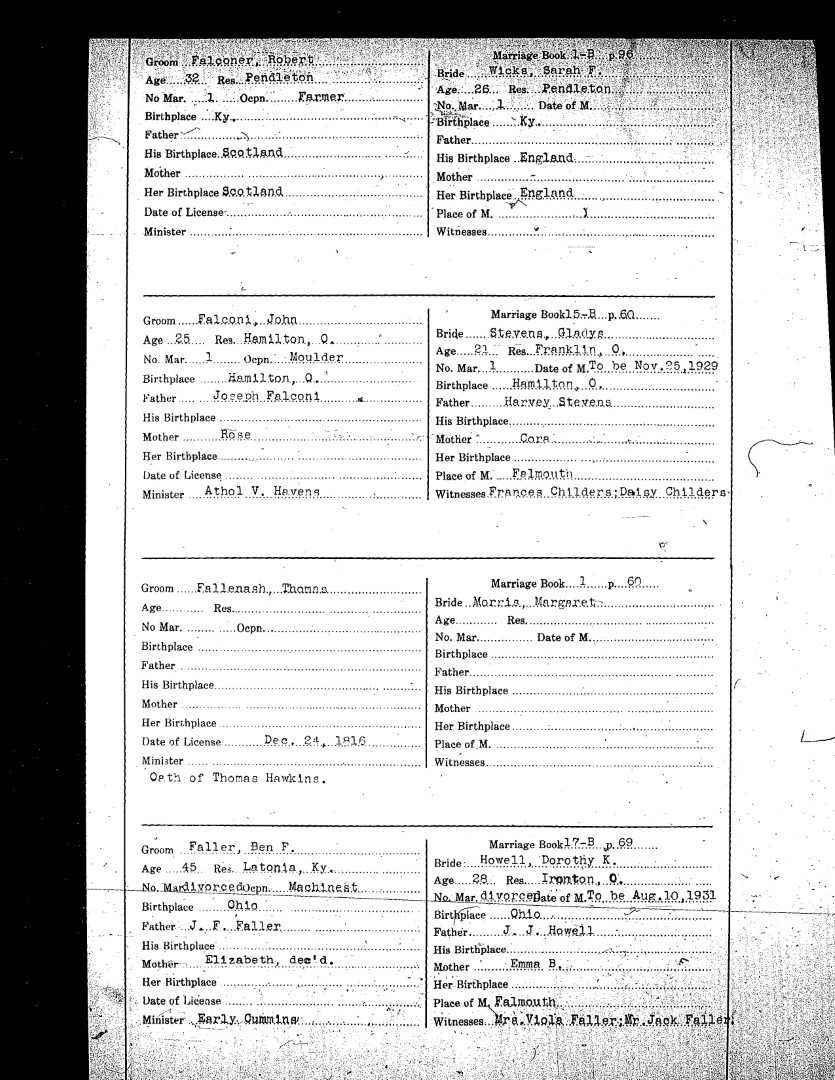 Groom Falconer, Robert
Age 32 Res. Pendleton
No Mar. 1 Ocpn. Farmer
Birthplace Ky.
Father
His Birthplace Scotland
Mother
Her Birthplace Scotland
Date of License
Minister
Marriage Book 1-B p.96
Bride Wicks, Sarah F.
Age 26 Res. Pendleton
No. Mar. 1 Date of M.
Birthplace Ky.
Father
His Birthplace England
Mother
Her Birthplace England
Place of M.
Witnesses
Groom Falconi, John
Age 25 Res. Hamilton, O.
No. Mar. 1 Ocpn. Moulder
Birthplace Hamilton, O.
Father Joseph Falconi
His Birthplace
Mother Rose
Her Birthplace
Date of License
Minister Athol V. Havens
Marriage Book 15-B p.60
Bride Stevens, Gladys
Age 21 Res. Franklin, O.
No. Mar. 1 Date of M. To be Nov.25,1929
Birthplace Hamilton, O.
Father Harvey Stevens
His Birthplace
Mother Cora
Her Birthplace
Place of M. Falmouth
Witnesses Frances Childers;Daisy Childers
Groom Fallenash, Thomas
Age Res.
No Mar. Ocpn.
Birthplace
Father
His Birthplace
Mother
Her Birthplace
Date of License Dec. 24, 1816
Minister
Oath of Thomas Hawkins.
Marriage Book 1 p. 60
Bride Morris, Margaret
Age Res.
No. Mar. Date of M.
Birthplace
Father
His Birthplace
Mother
Her Birthplace
Place of M.
Witnesses
Groom Faller, Ben F.
Age 45 Res. Latonia, Ky.
No. Mar divorced Ocpn. Machinest
Birthplace Ohio
Father J. F. Faller
His Birthplace
Mother Elizabeth, dec'd.
Her Birthplace
Date of License
Minister Early Cummins
Marriage Book 17-B p.69
Bride Howell, Dorothy K.
Age 28 Res. Ironton, O.
No. Mar. divorced Date of M. To be Aug.10,1931
Birthplace Ohio
Father J. J. Howell
His Birthplace
Mother Emma B.
Her Birthplace
Place of M. Falmouth
Witnesses Mrs.Viola Faller;Mr.Jack Faller.